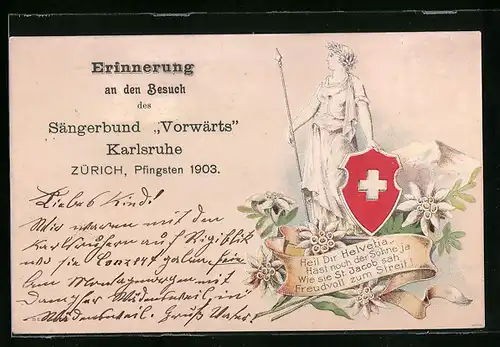 Erinnerung
an den Besuch
des
Sängerbund „Vorwärts"
Karlsruhe
ZÜRICH, Pfingsten 1903.
Liebes Kind!
Wir waren mit den
Karlsruhern auf Rigiblik
wo sie Conzert gaben,
am
Dampfer Wädensweil, in
Wädensweil. Gruß Vater.
Heil Dir Helvetia,
Hast noch der Söhne ja
Wie sie St. Jacob sah
Freudvoll zum Streit!